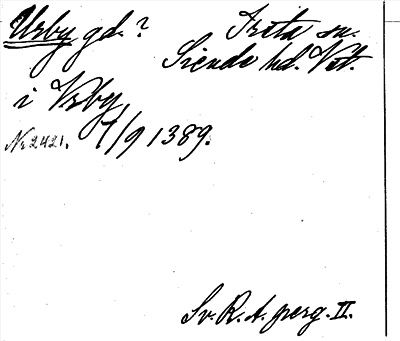 Usby gd. ? Freta sn.
Siende hd. Vet.
i Vrby,
Nr 2421. 7/9 1389.
Sv. R. A. perg. II.